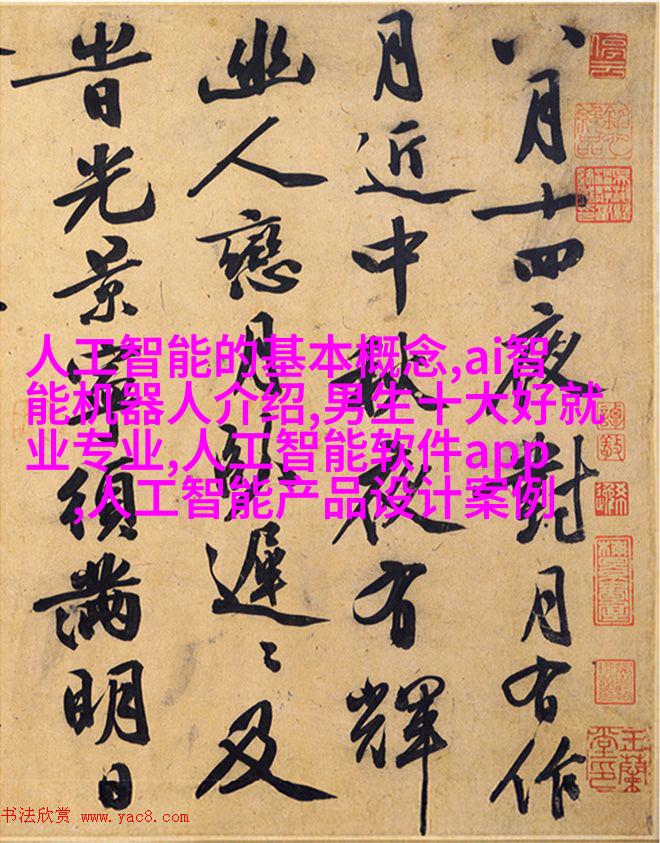 八月十四夜對月有作
月近中秋夜有輝
幽人戀月遲〻及
旹光景寧須滿明日
人工智能的基本概念,ai智
能机器人介绍,男生十大好就
业专业,人工智能软件app
,人工智能产品设计案例
停雲
玉蘭堂印
书法欣赏 www.yac8.com